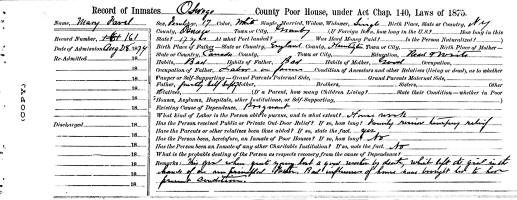 Record of Inmates Oswego County Poor House, under Act Chap. 140, Laws of 1875.
Name, Mary Sex, Female Age, 17 Color, White Single, Married, Widow, Widower, Single Birth Place, State or Country, N.Y.
County, Oswego Town or City, Granby (If Foreign born, how long in the U.S.? How long in this
Record Number, 161 State? 17 yrs At what Port landed? Was Head Money Paid? Is the Person Naturalized?
Date of Admission, Aug 28, 1879 Birth Place of Father—State or Country, England County, Town or City, Birth Place of Mother—
Re-Admitted 18 State or Country, Canada County, Town or City, Education, Read & Write
Habits, Bad Habits of Father, Bad Habits of Mother, Good Occupation,
18 Occupation of Father, Labor on farm Condition of Ancestors and other Relations (living or dead), as to whether
18 Pauper or Self-Supporting—Grand Parents Paternal Side, Grand Parents Maternal Side,
18 Father, partly self Mother, Brothers, Sisters, Other
18 Relatives, (If a Parent, how many Children Living? State their Condition—whether in Poor
18 Houses, Asylums, Hospitals, other Institutions, or Self-Supporting,
18 Existing Cause of Dependence? Pregnant
18 What kind of Labor is the Person able to pursue, and to what extent? House work
Discharged 18 Has the Person received Public or Private Out-Door Relief? If so, how long? Family some temporary relief
18 Have the Parents or other relations been thus aided? If so, state the fact. yes
18 Has the Person been, heretofore, an Inmate of Poor House? If so, how long? No
18 Has the Person been an Inmate of any other Charitable Institution? If so, note the fact. No
18 What is the probable destiny of the Person as respects recovery from the cause of Dependence?
18 Remarks: This girl when quite young lost a good mother by death, which left the girl in the
18 hands of an unprincipled father. Bad influences of home have brought her to her
18 present condition.